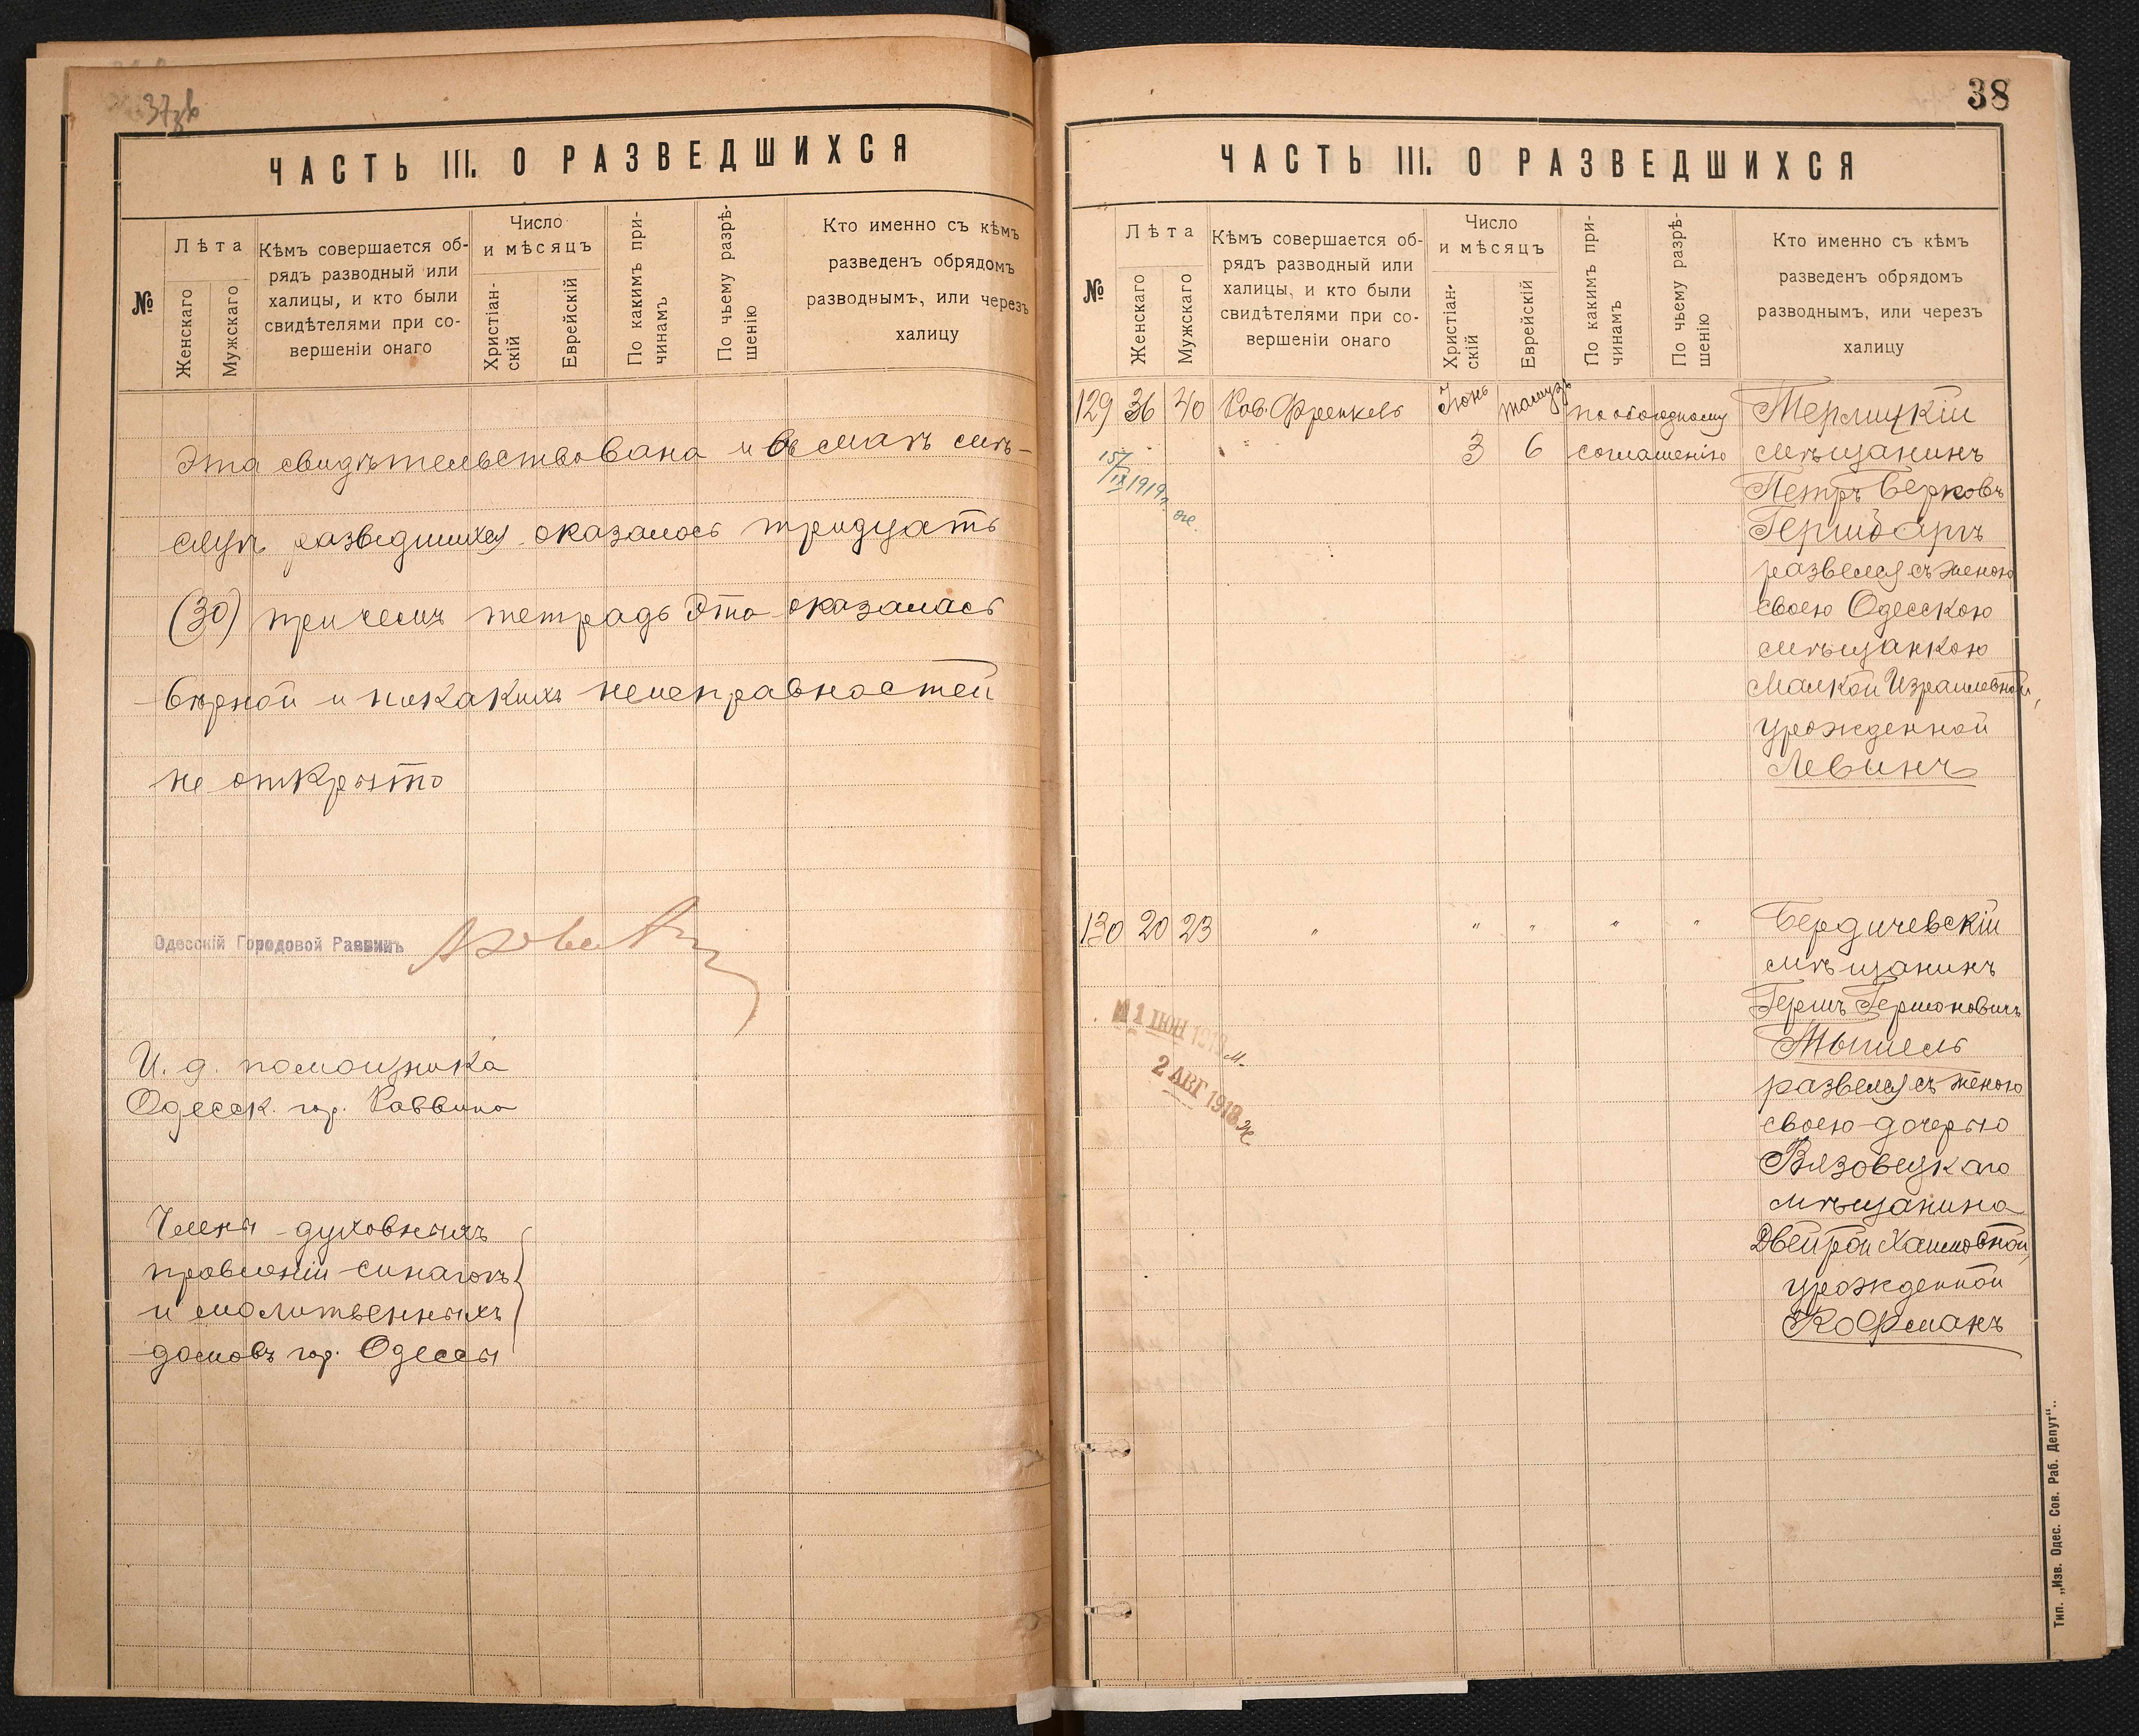 37 зв
ЧАСТЬ III. О РАЗВЕДШИХСЯ
№
Лѣта
Женскаго
Мужскаго
Кѣмъ совершается об-
рядъ разводный или
халицы, и кто были
свидѣтелями при со-
вершеніи онаго
Число
и мѣсяцъ
Христіан-
скій
Еврейскій
По какимъ при-
чинамъ
По чьему разрѣ-
шенію
Кто именно съ кѣмъ
разведенъ обрядомъ
разводнымъ, или через
халицу
Эта свидѣтельствована и въ маѣ мѣ-
сяцѣ разведшихся оказалось тридцать
(30) причемъ тетрадь эта оказалась
вѣрной и никакихъ неисправностей
не открыто
Одесскій Городовой Раввинъ
И. д. помощника
Одесск. гор. Раввина
Члены духовныхъ
правленій синагогъ
и молитвенныхъ
домовъ гор. Одессы
38
ЧАСТЬ III. О РАЗВЕДШИХСЯ
№
Лѣта
Женскаго
Мужскаго
Кѣмъ совершается об-
рядъ разводный или
халицы, и кто были
свидѣтелями при со-
вершеніи онаго
Число
и мѣсяцъ
Христіан-
скій
Еврейскій
По какимъ при-
чинамъ
По чьему разрѣ-
шенію
Кто именно съ кѣмъ
разведенъ обрядомъ
разводнымъ, или черезъ
халицу
129 36 40 Рав. Френкель Іюнь Тамузъ по обоюдному Терлицкій
3 6 соглашенію мѣщанинъ
15/IX 1919 г.
Петръ Берковъ
Гершбаргъ
развелся съ женою
своею Одесскою
мѣщанкою
Малкой Израилевной,
урожденной
Левинъ
130 20 23 " " " " " Бердичевскій
мѣщанинъ
Гершъ Гершоновичъ
11 ІЮН 1918 м.
Тышель
2 АВГ 1918 ж
развелся съ женою
своею дочерью
Вязовецкаго
мѣщанина
Двейрой Хаимовной,
урожденной
Кофманъ
Тип. „Изв. Одес. Сов. Раб. Депут“..